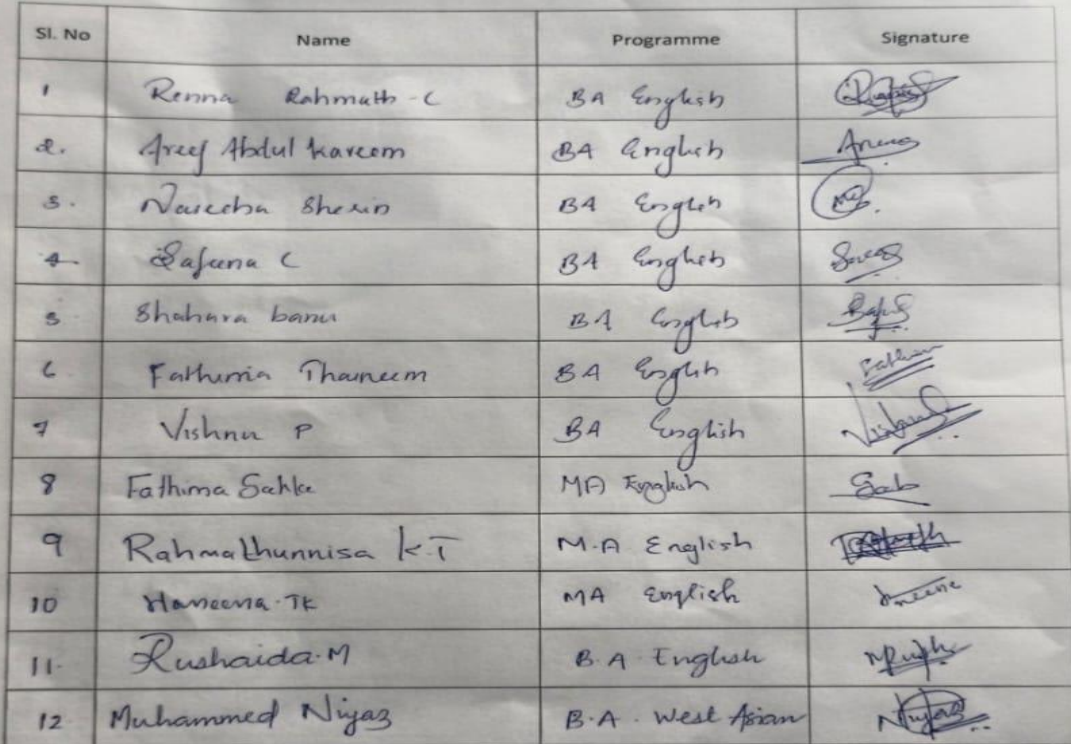 Sl. No Name Programme Signature
1 Renna Rahmath - C BA English
2. Areef Abdul kareem BA English
3. Naseeba Sherin BA English
4 Safeena C BA English
5 Shahara banu BA English
6 Fathima Thasneem BA English
7 Vishnu P BA English
8 Fathima Sahla MA English
9 Rahmathunnisa K.T M.A English
10 Haneena. TK MA English
11. Rushaida. M B.A. English
12 Muhammed Niyaz B.A. West Asian